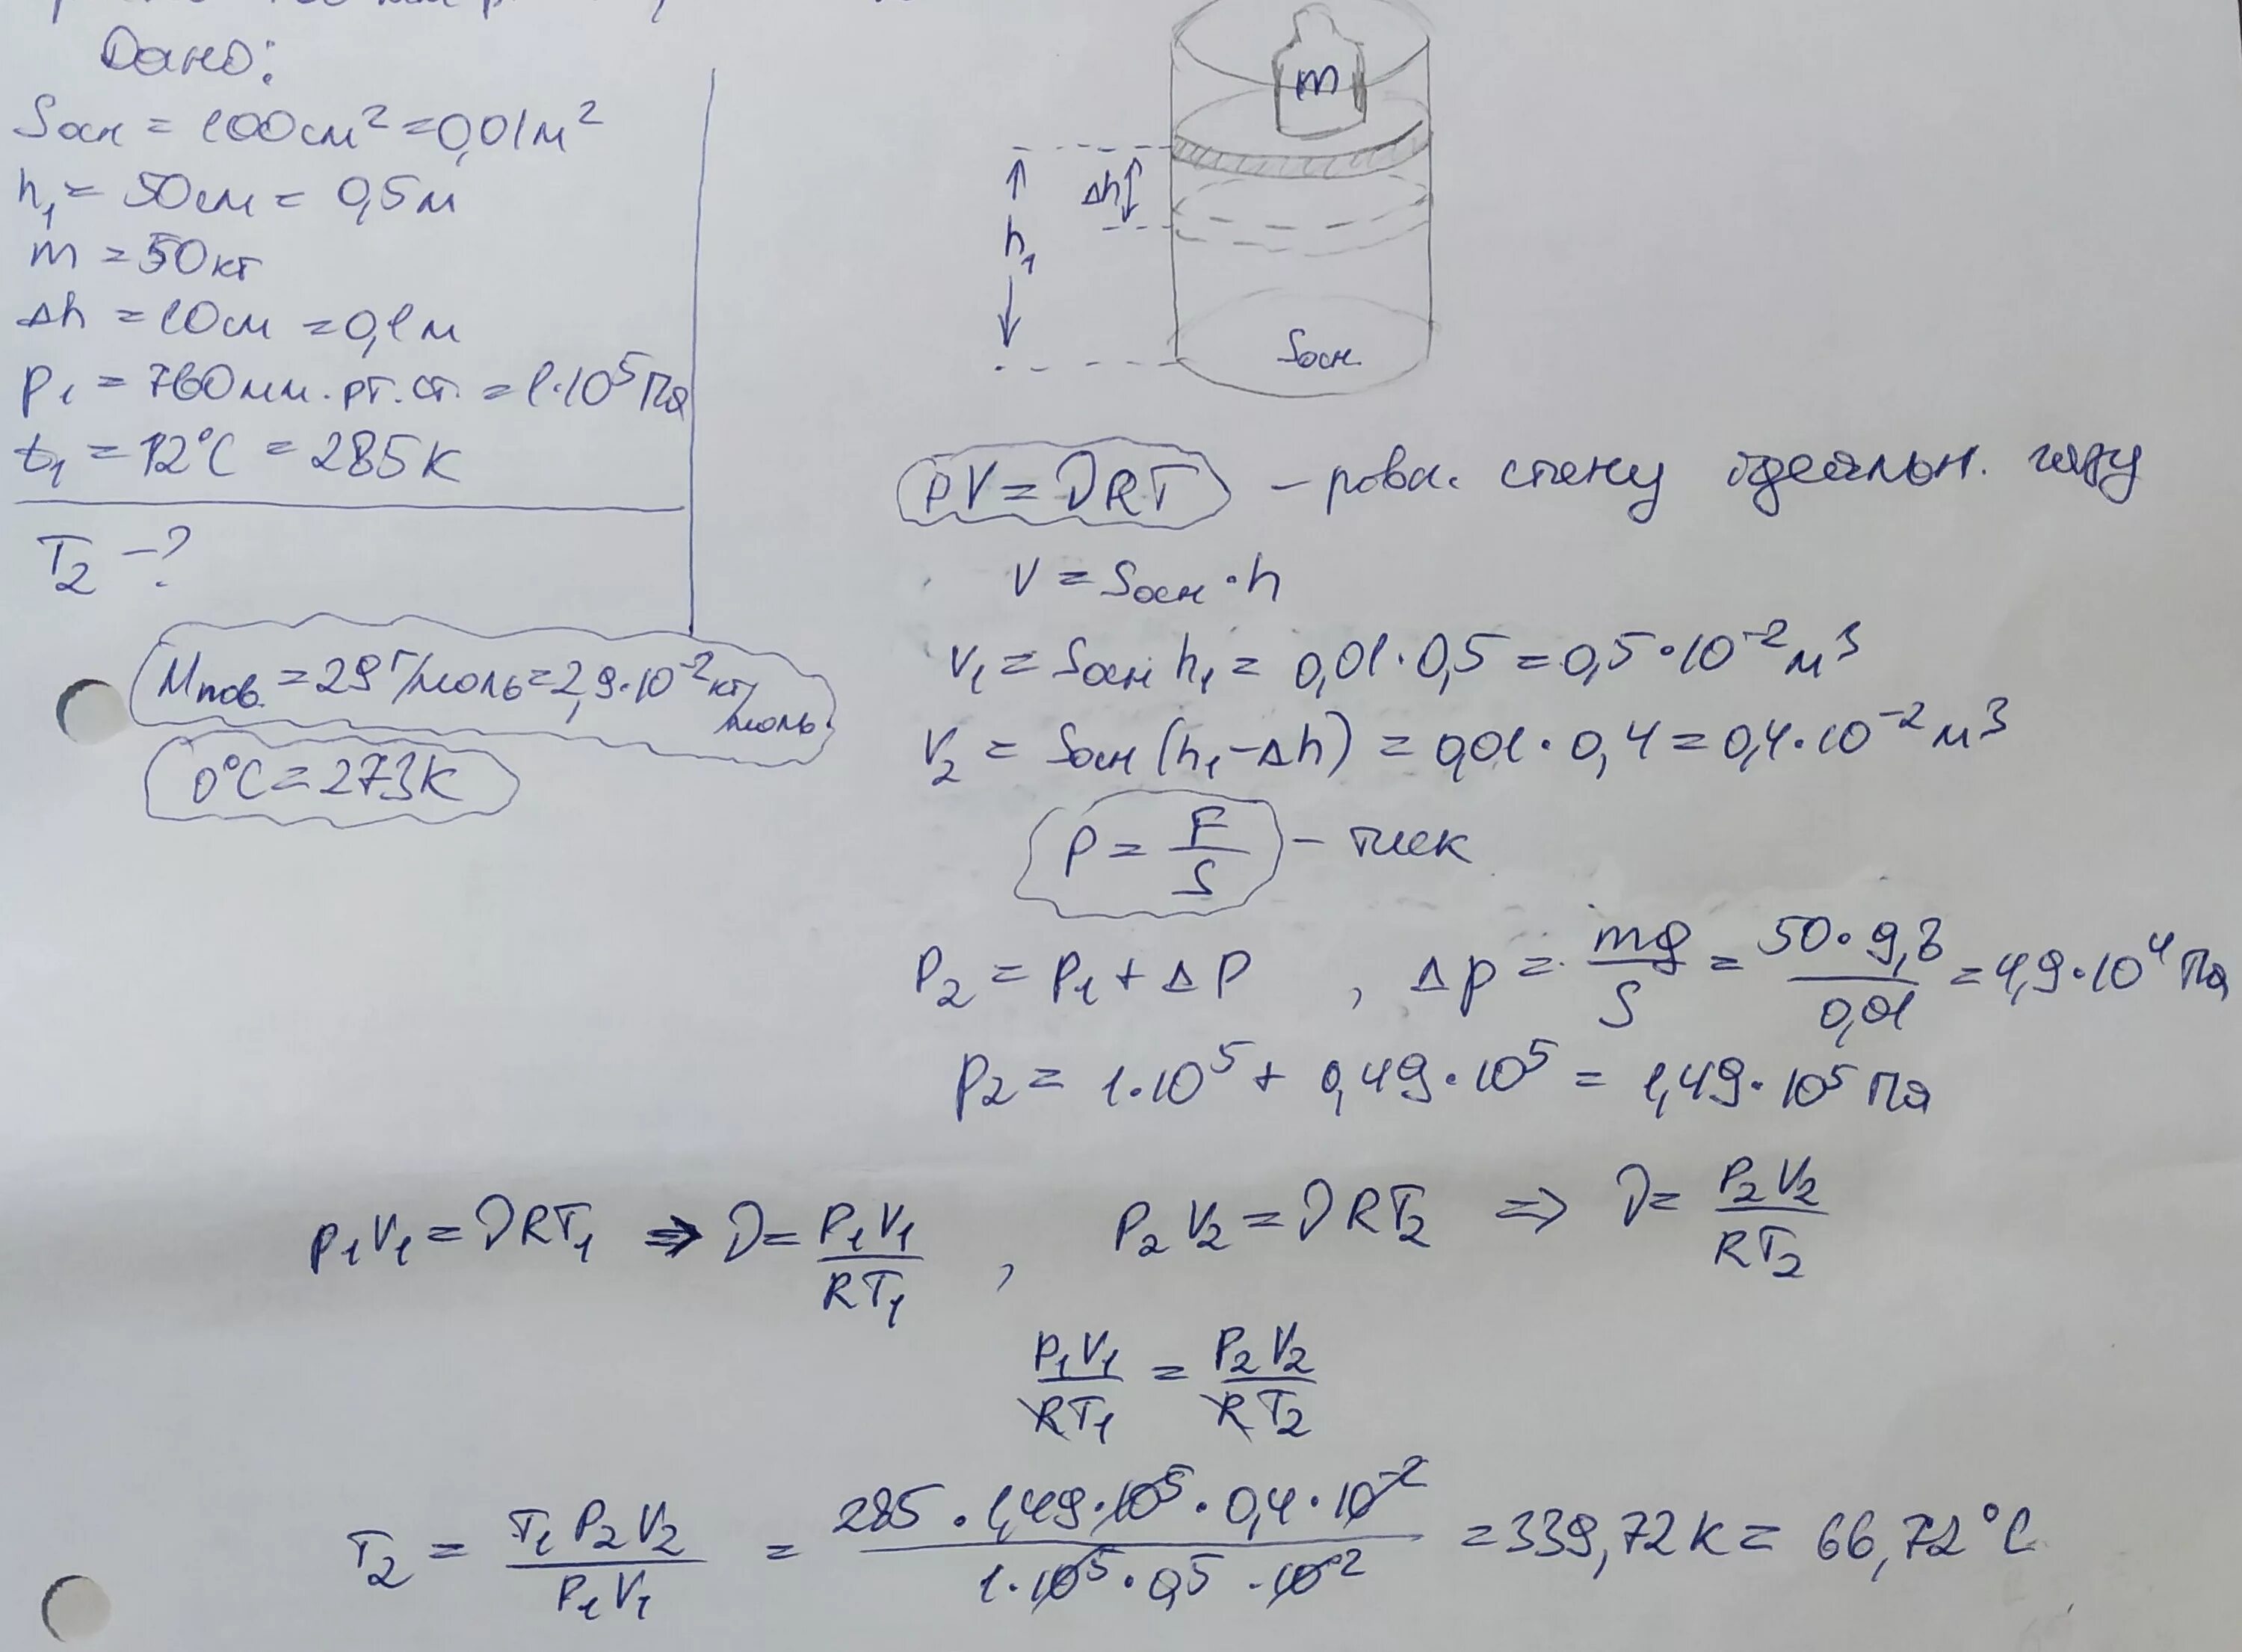 Дано:
Sосн = 100см² = 0,01м²
h₁ = 50см = 0,5м
m = 50кг
Δh = 10см = 0,1м
p₁ = 760мм.рт.ст. = 1·10⁵Па
t₁ = 12°C = 285K
T₂ -?
Mпов. = 29г/моль = 2,9·10⁻²кг/моль
0°C = 273K
m
Δh
h₁
Sосн.
pV = νRT - ровн. стану ідеальн. газу
V = Sосн · h
V₁ = Sосн h₁ = 0,01·0,5 = 0,5·10⁻² м³
V₂ = Sосн (h₁-Δh) = 0,01 · 0,4 = 0,4·10⁻² м³
P = F/S - тиск
P₂ = P₁ + ΔP , Δp = mg/S = 50·9,8/0,01 = 4,9·10⁴ Па
P₂ = 1·10⁵ + 0,49·10⁵ = 1,49·10⁵ Па
P₁V₁ = νRT₁ ⇒ ν = P₁V₁/RT₁ , P₂V₂ = νRT₂ ⇒ ν = P₂V₂/RT₂
P₁V₁/RT₁ = P₂V₂/RT₂
T₂ = T₁P₂V₂/P₁V₁ = 285·1,49·10⁵·0,4·10⁻²/1·10⁵·0,5·10⁻² = 339,72K = 66,72°C